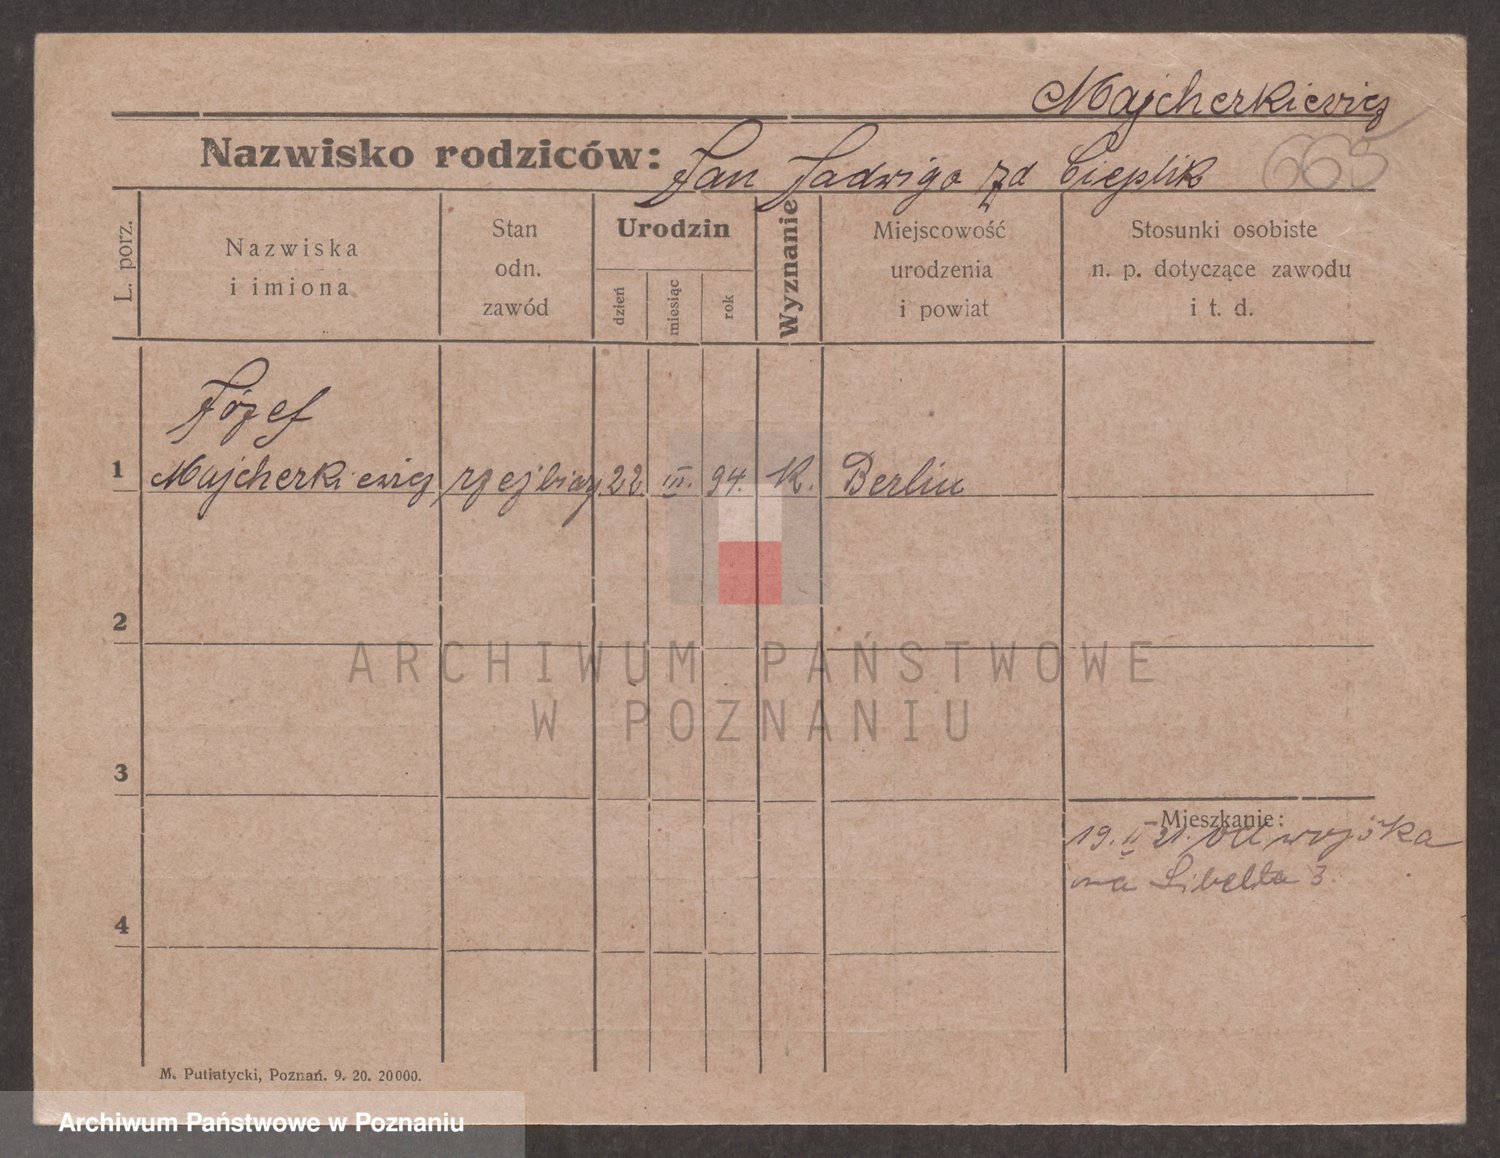 Majcherkiewicz
Nazwisko rodziców: Jan Jadwiga zd Cieplik
665
L. porz.
Nazwiska
i imiona
Stan
odn.
zawód
Urodzin
dzień
miesiąc
rok
Wyznanie
Miejscowość
urodzenia
i powiat
Stosunki osobiste
n. p. dotyczące zawodu
i t. d.
Józef
1 Majcherkiewicz 22. III. 94. K. Berlin
2
ARCHIWUM PAŃSTWOWE
W POZNANIU
3
Mieszkanie:
19. II 21. od wojska
na Libelta 3.
4
M. Putiatycki, Poznań. 9. 20. 20000.
Archiwum Państwowe w Poznaniu